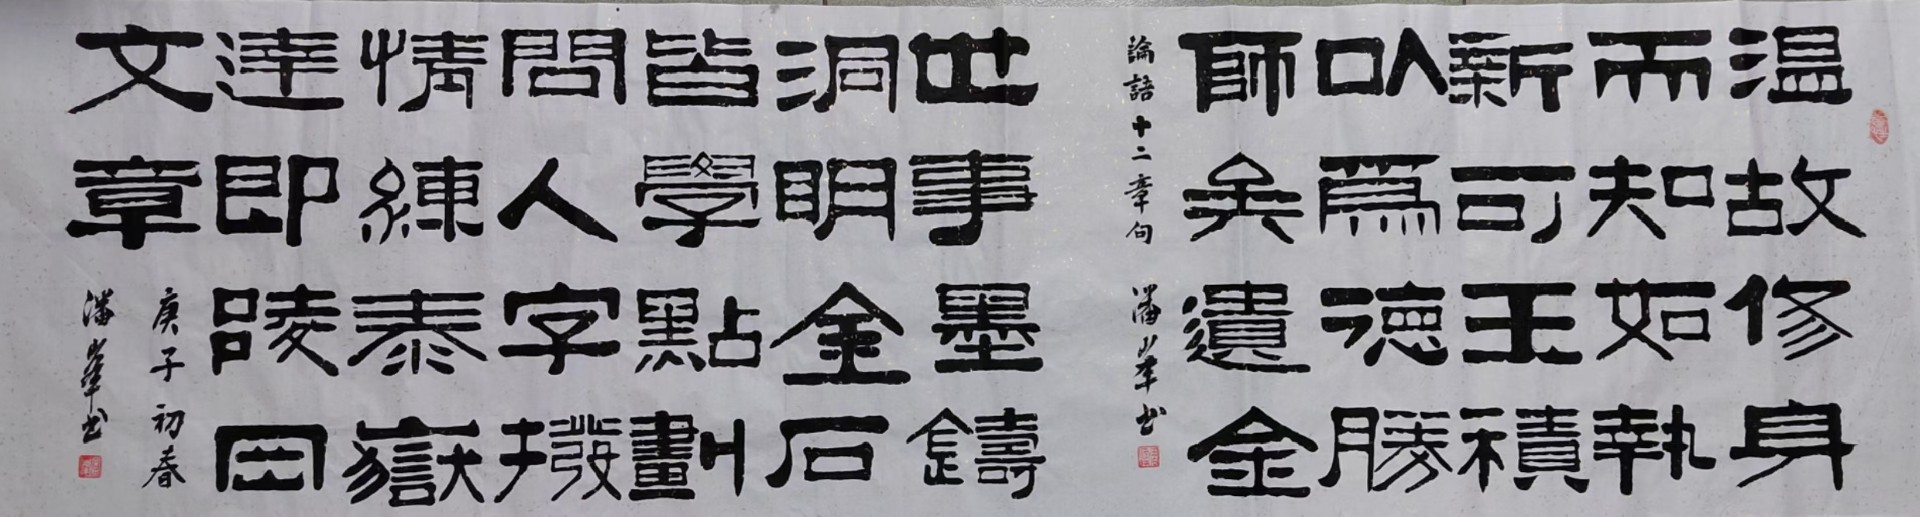 温故
而知
新可
以為
師矣
論語十二章句
修身
如執
玉積
德勝
遺金
潘峯书
世事
洞明
皆學
問人
情練
達即
文章
墨鑄
金石
點劃
字撥
泰嶽
陵岡
庚子初春
潘峯书